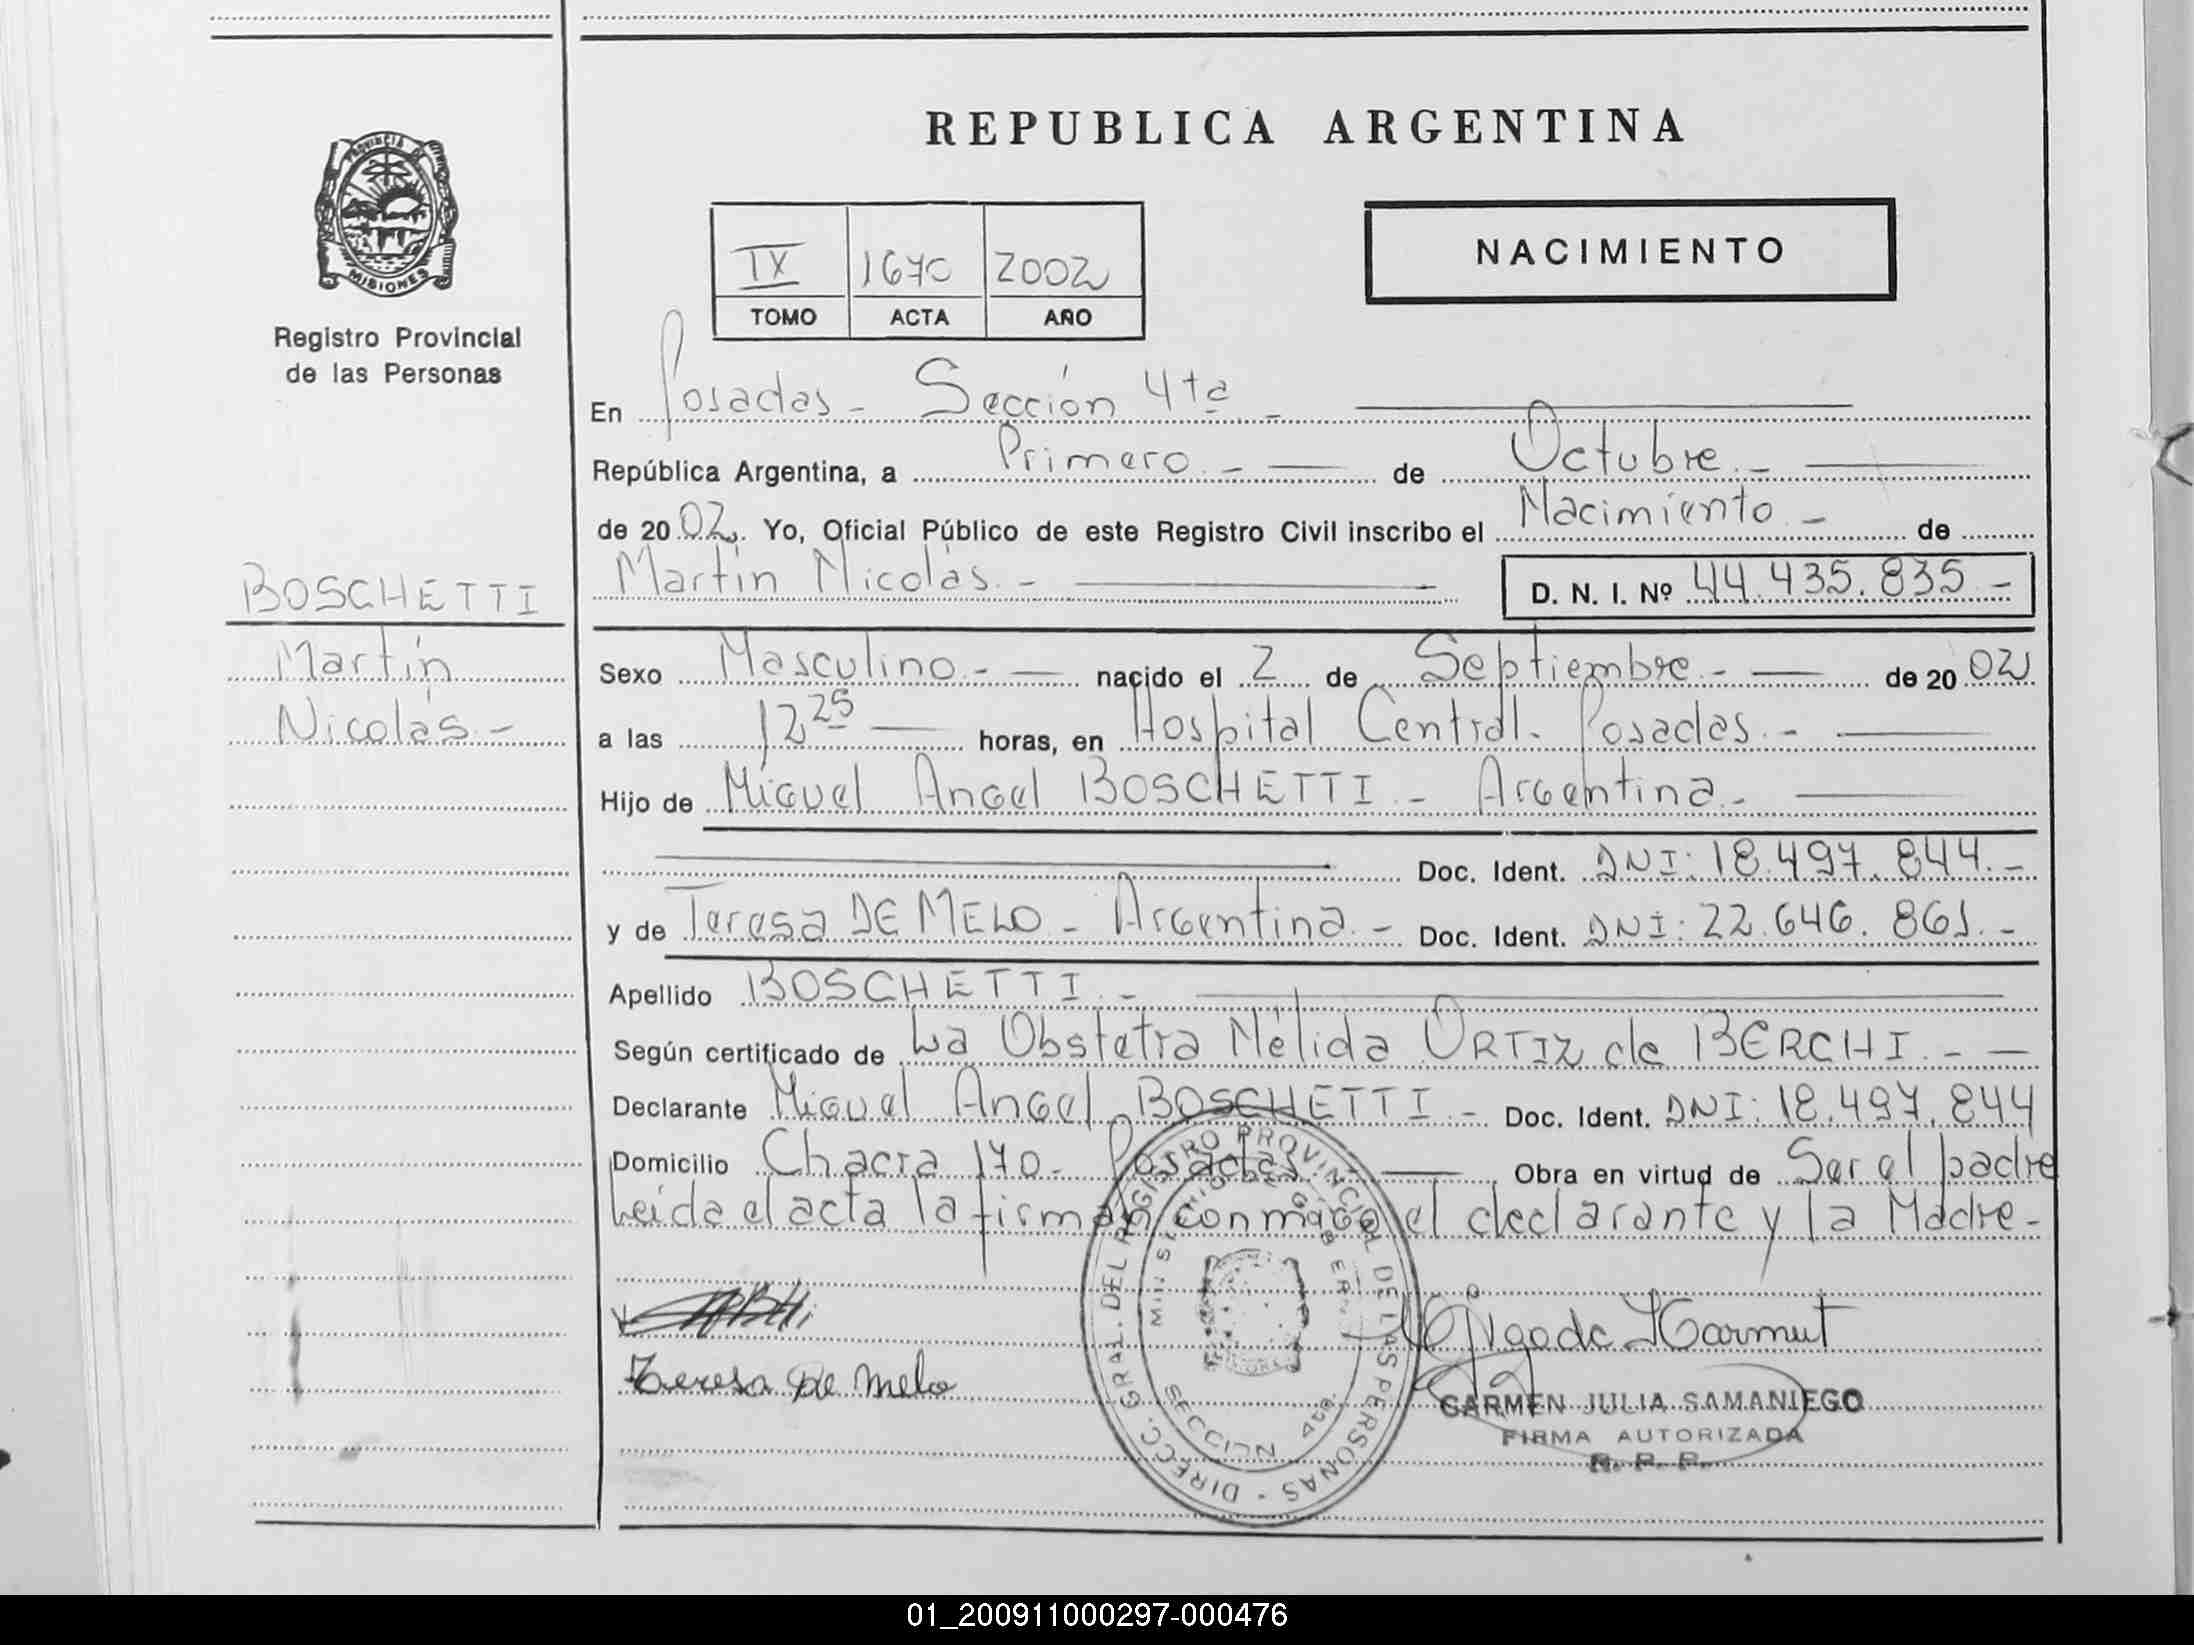 REPUBLICA ARGENTINA
PROVINCIA DE
MISIONES
Registro Provincial
de las Personas
IX 1670 2002
TOMO ACTA AÑO
NACIMIENTO
En Posadas - Sección 4ta -
República Argentina, a Primero - de Octubre -
de 2002. Yo, Oficial Público de este Registro Civil inscribo el Nacimiento - de
Martín Nicolás - D. N. I. Nº 44.435.835 -
BOSCHETTI
Martín
Nicolás -
Sexo Masculino - nacido el 2 de Septiembre - de 2002
a las 12 25 horas, en Hospital Central - Posadas -
Hijo de Miguel Angel BOSCHETTI - Argentina -
Doc. Ident. DNI: 18.497.844 -
y de Teresa DE MELO - Argentina - Doc. Ident. DNI: 22.646.861 -
Apellido BOSCHETTI -
Según certificado de La Obstetra Nélida ORTIZ de BERCHI -
Declarante Miguel Angel BOSCHETTI - Doc. Ident. DNI: 18.497.844
Domicilio Chacra 170 - Posadas Obra en virtud de Ser el padre
Leída el acta la firman conmigo el declarante y la Madre -
Teresa De Melo
DIRECC. GRAL. DEL REGISTRO PROVINCIAL DE LAS PERSONAS -
MINISTERIO DE GOBIERNO
SECCION 4ta.
CARMEN JULIA SAMANIEGO
FIRMA AUTORIZADA
R. P. P.
01_200911000297-000476